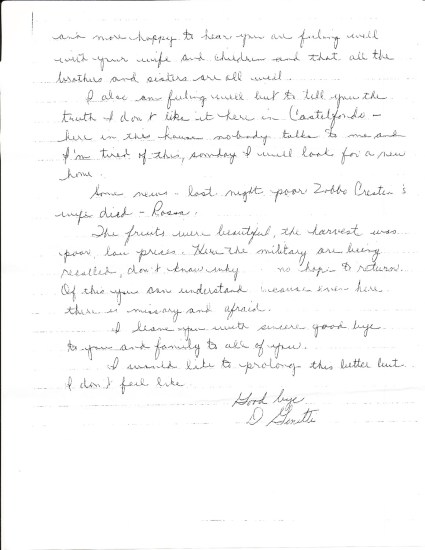 and more happy to hear you are feeling well
with your wife and children and that all the
brothers and sisters are all well.
I also am feeling well but to tell you the
truth I don't like it here in Castelfondo -
here in this house nobody talks to me and
I'm tired of this, someday I will look for a new
home.
Some news - last night poor Zobbo Cresten's
wife died - Rosa.
The fruits were beautiful, the harvest was
poor, low prices. Here the military are being
recalled, don't know why no hope to return.
Of this you can understand because even here
there is missary and afraid.
I leave you with sincere good bye
to you and family to all of you.
I would like to prolong this letter but
I don't feel like
Good bye
D